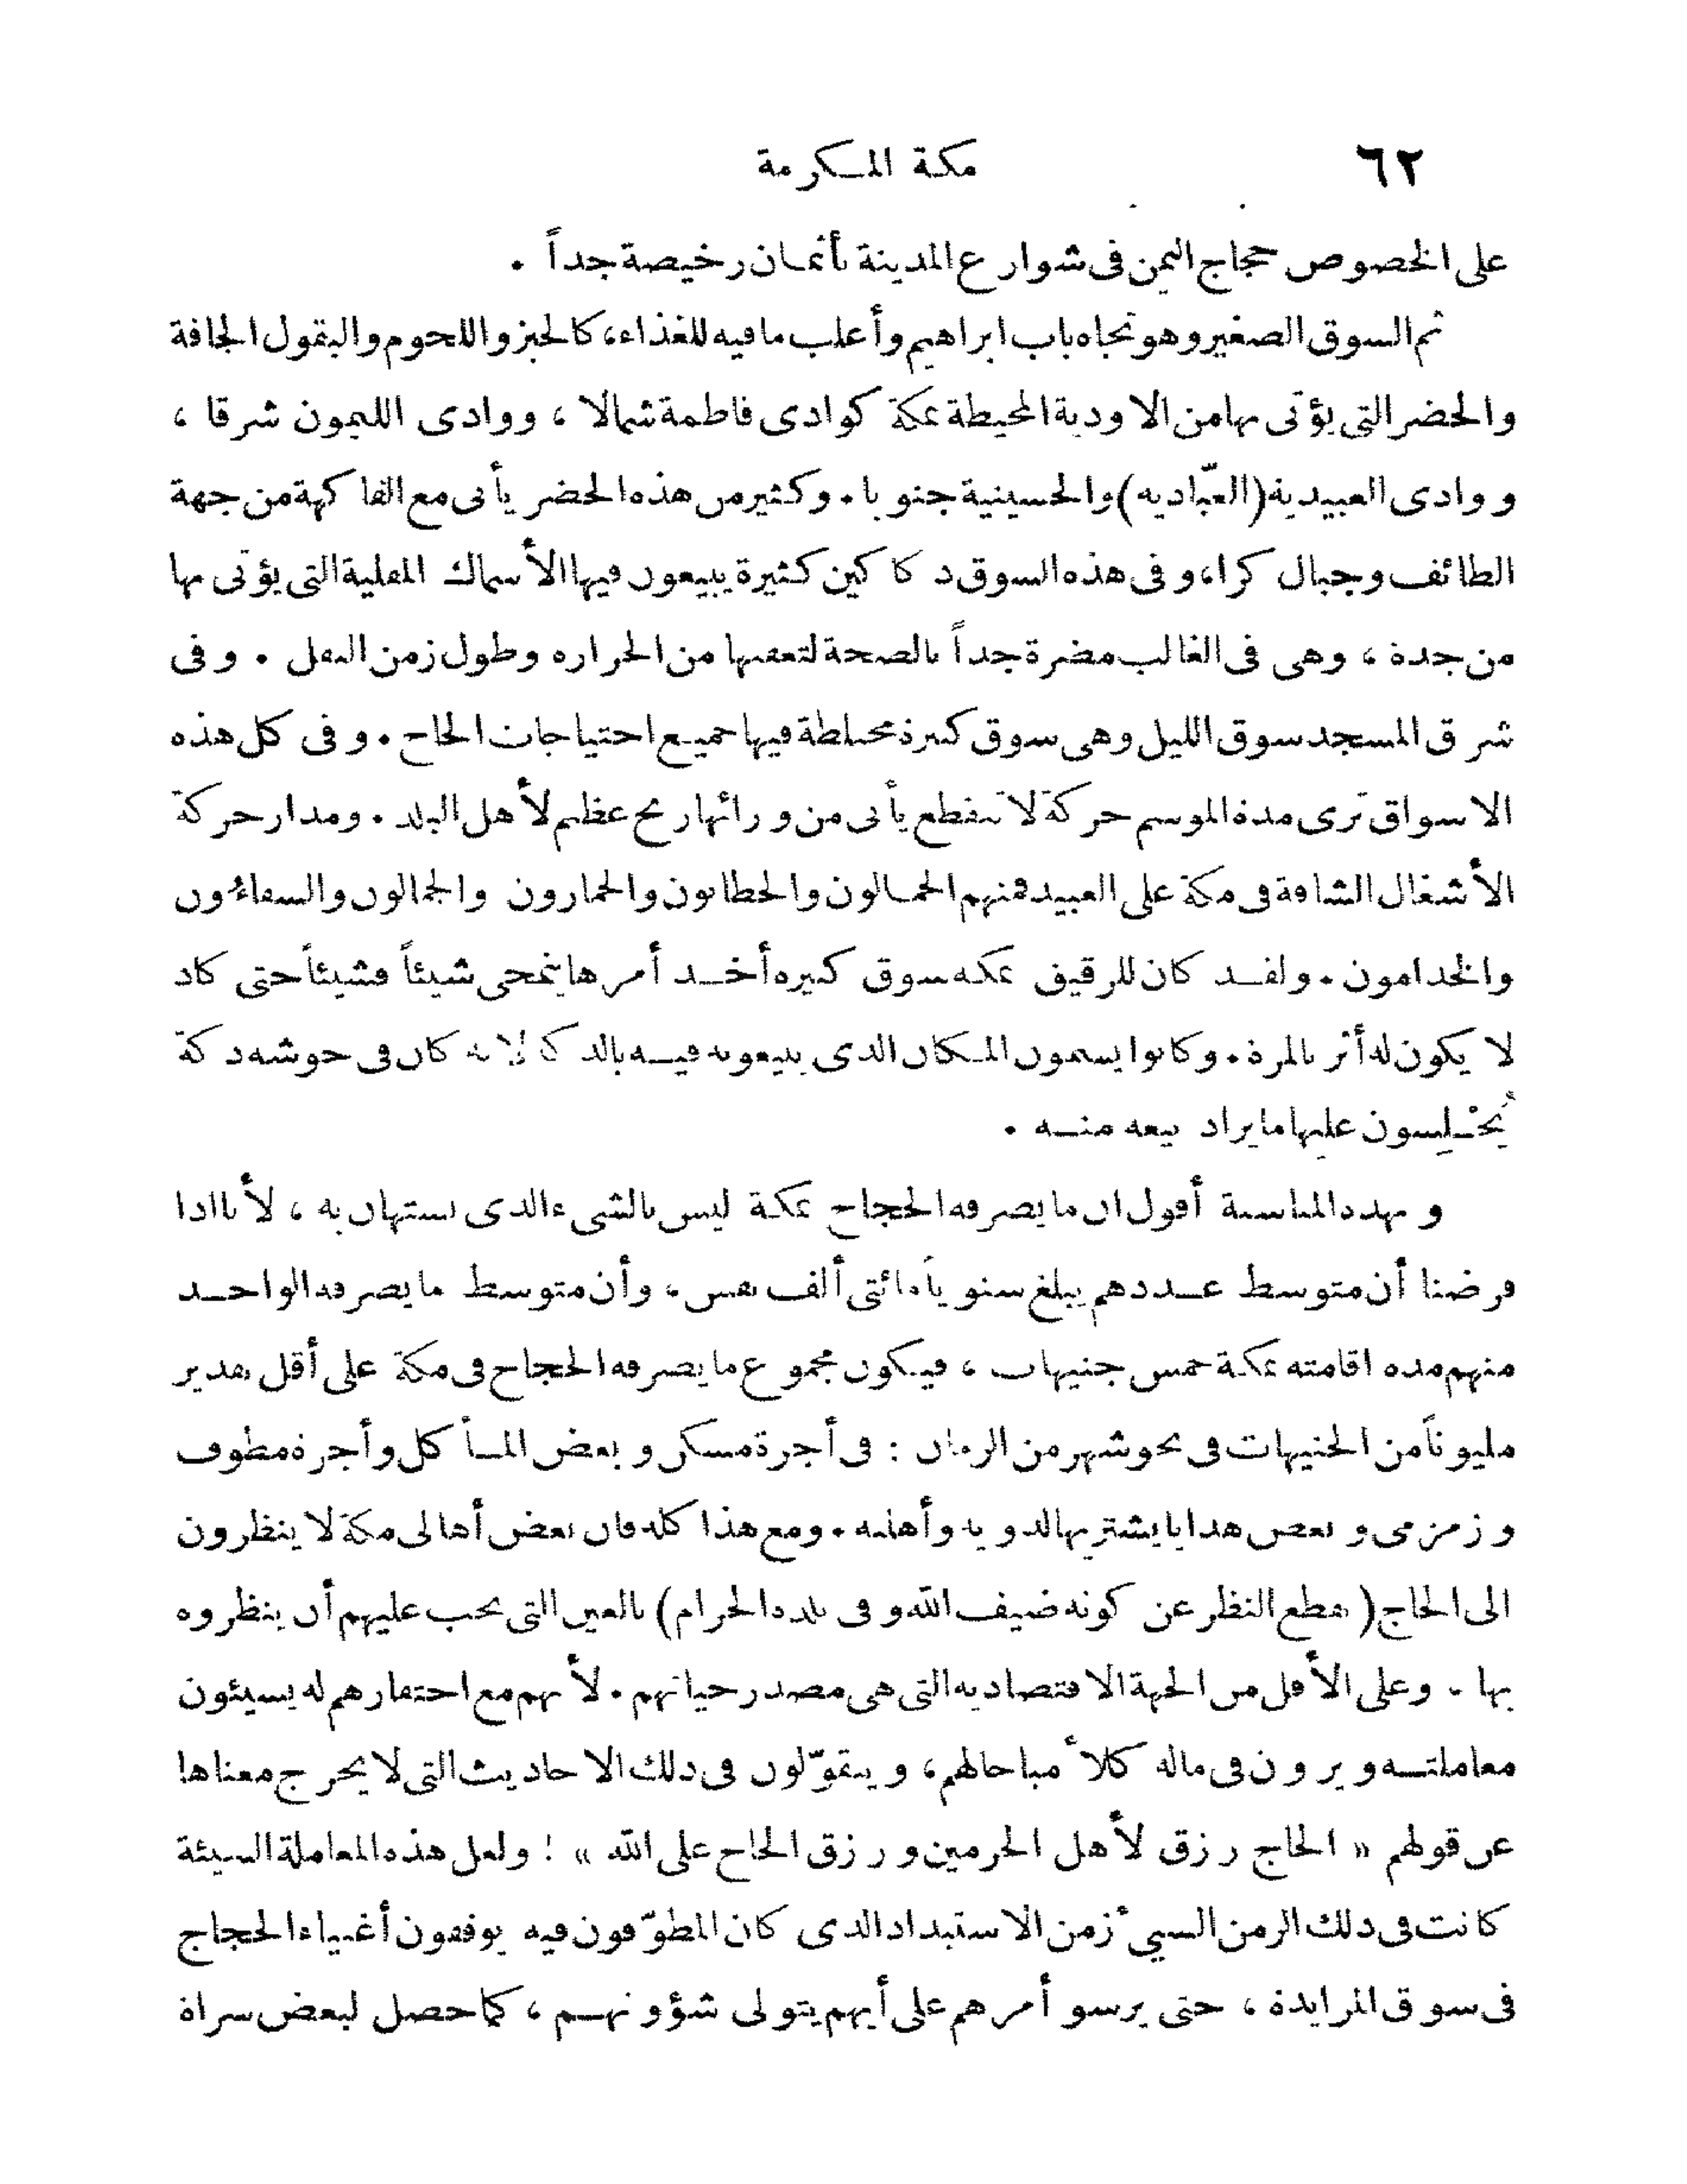 ٦٢ مكة المكرمة
على الخصوص حجاج اليمن فى شوارع المدينة بأثمان رخيصة جداً .
ثم السوق الصغير وهو تجاه باب ابراهيم وأغلب ما فيه للغذاء، كالخبز واللحوم والبقول الجافة
والخضر التى يؤتى بها من الاودية المحيطة بمكة كوادى فاطمة شمالا ، ووادى الليمون شرقا ،
ووادى العبيدية (العبّاديه) والحسينية جنوبا . وكثير من هذه الخضر يأتى مع الفاكهة من جهة
الطائف وجبال كراء، وفى هذه السوق دكاكين كثيرة يبيعون فيها الأسماك المقلية التى يؤتى بها
من جدة ، وهى فى الغالب مضرة جداً بالصحة لتعفنها من الحراره وطول زمن النقل . وفى
شرق المسجد سوق الليل وهى سوق كبيرة مختلطة فيها جميع احتياجات الحاج . وفى كل هذه
الاسواق ترى مدة الموسم حركة لا تنقطع يأتى من ورائها ربح عظيم لأهل البلد . ومدار حركة
الأشغال الشاقة فى مكة على العبيد فمنهم الحمالون والحطابون والحمارون والجمالون والسقاءون
والخدامون . ولقد كان للرقيق بمكه سوق كبيره أخذ أمرها ينمحى شيئاً فشيئاً حتى كاد
لا يكون له أثر بالمرة . وكانوا يسمون المكان الذى يبيعونه فيه بالدكة لانه كان فى حوشه دكة
يُجْلِسون عليها ما يراد بيعه منه .
وبهذه المناسبة أقول ان ما يصرفه الحجاج بمكة ليس بالشىء الذى يستهان به ، لأنا اذا
فرضنا أن متوسط عددهم يبلغ سنوياً مائتى ألف نفس ، وأن متوسط ما يصرفه الواحد
منهم مده اقامته بمكة خمس جنيهات ، فيكون مجموع ما يصرفه الحجاج فى مكة على أقل تقدير
مليوناً من الجنيهات فى نحو شهر من الزمان : فى أجرة مسكن وبعض المأكل وأجرة مطوف
وزمزمى وبعض هدايا يشتريها لذويه وأهله . ومع هذا كله فان بعض أهالى مكة لا ينظرون
الى الحاج ( بقطع النظر عن كونه ضيف الله وفى بلده الحرام) بالعين التى يجب عليهم أن ينظروه
بها . وعلى الأقل من الجهة الاقتصاديه التى هى مصدر حياتهم . لأنهم مع احتقارهم له يسيئون
معاملته ويرون فى ماله كلأ مباحا لهم، ويتقوّلون فى ذلك الاحاديث التى لا يخرج معناها
عن قولهم « الحاج رزق لأهل الحرمين ورزق الحاج على الله » ! ولعل هذه المعاملة السيئة
كانت فى ذلك الزمن السيئ زمن الاستبداد الذى كان المطوّفون فيه يوقفون أغنياء الحجاج
فى سوق المزايدة ، حتى يرسو أمرهم على أيهم يتولى شؤونهم ، كما حصل لبعض سراة